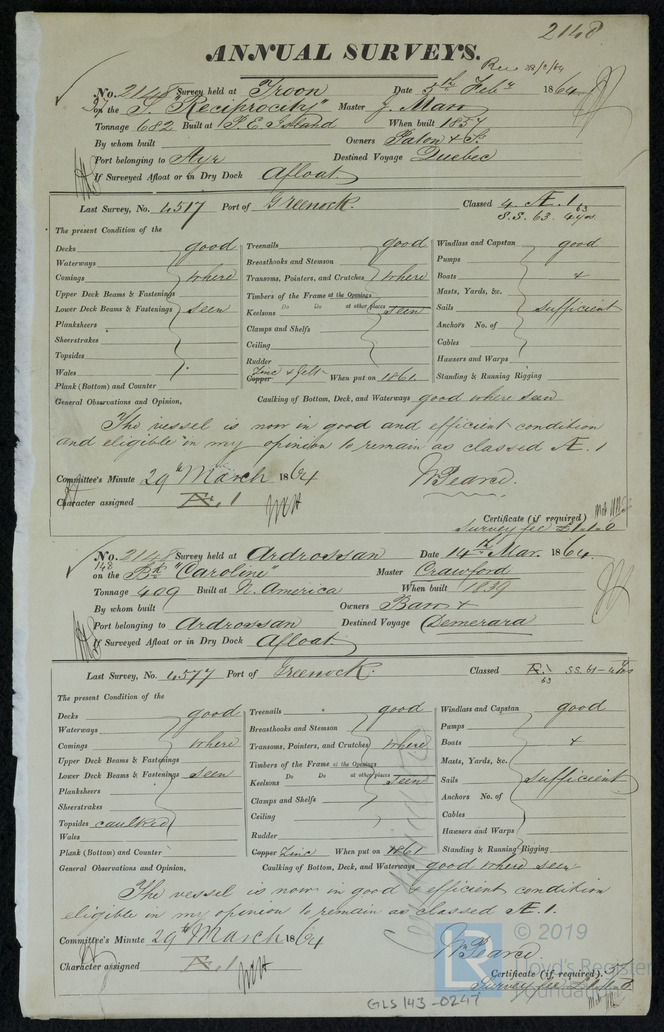 2148
ANNUAL SURVEYS.
No. 2148 Survey held at Troon Date 5th Feb 1864
on the S. "Reciprocity" Master J. Marr
Tonnage 682 Built at P. E. Island When built 1857
By whom built Owners Paton &
Port belonging to Ayr Destined Voyage Quebec
If Surveyed Afloat or in Dry Dock Afloat
Last Survey, No. 4517 Port of Greenock. Classed 4 Æ.1 63
S.S. 63. 4 yrs
The present Condition of the
Decks good Treenails good Windlass and Capstan good
Waterways Breasthooks and Stemson Pumps
Comings where Transoms, Pointers, and Crutches where Boats 4
Upper Deck Beams & Fastenings Timbers of the Frame at the Openings Masts, Yards, &c.
Do Do at other places
Lower Deck Beams & Fastenings seen Keelsons seen Sails sufficient
Planksheers Clamps and Shelfs Anchors No. of
Sheerstrakes Ceiling Cables
Topsides Rudder Hawsers and Warps
Wales Copper Zinc & felt When put on 1861 Standing & Running Rigging
Plank (Bottom) and Counter
General Observations and Opinion, Caulking of Bottom, Deck, and Waterways good where seen
The vessel is now in good and efficient condition
and eligible in my opinion to remain as classed Æ.1
Committee's Minute 29th March 1864 Wm Pearce.
Character assigned Æ.1
Certificate (if required)
Survey fee £1.1.0
No. 2148 Survey held at Ardrossan Date 14th Mar. 1864
148
on the Bk "Caroline" Master Crawford
Tonnage 409 Built at N. America When built 1839
By whom built Owners Barr &
Port belonging to Ardrossan Destined Voyage Demerara
If Surveyed Afloat or in Dry Dock Afloat
Last Survey, No. 4577 Port of Greenock. Classed Æ.1 63 SS. 61 - 4 yrs
The present Condition of the
Decks good Treenails good Windlass and Capstan good
Waterways Breasthooks and Stemson Pumps
Comings where Transoms, Pointers, and Crutches where Boats 4
Upper Deck Beams & Fastenings Timbers of the Frame at the Openings Masts, Yards, &c.
Do Do at other places
Lower Deck Beams & Fastenings seen Keelsons seen Sails sufficient
Planksheers Clamps and Shelfs Anchors No. of
Sheerstrakes Ceiling Cables
Topsides caulked Rudder Hawsers and Warps
Wales
Plank (Bottom) and Counter Copper Zinc When put on 1861 Standing & Running Rigging
General Observations and Opinion, Caulking of Bottom, Deck, and Waterways good where seen
The vessel is now in good & efficient condition
eligible in my opinion to remain as classed Æ.1.
Committee's Minute 29th March 1864 Wm Pearce
Character assigned Æ.1
Certificate (if required).
Survey fee
© 2019
LR
Lloyd's Register
Foundation
GLS 143-0247